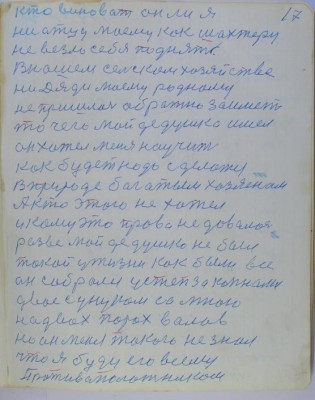 17
кто виноват он ли я
ни атцу моему как шахтеру
не везло себя поднять
В нашем селском хозяйстве
ни Дяди моему родному
не пришлось обратно
то чего мой дедушка имел
он хотел меня научит
как будет надо сделать
В природе богатым хозяеном
А кто этого не хотел
и кому это право не довалос
разве мой дедушка не был
такой у жизни как были все
он собрал
двое с унуком со мною
на двоих
но он меня такого не знал
что я буду его всему
Противаположником